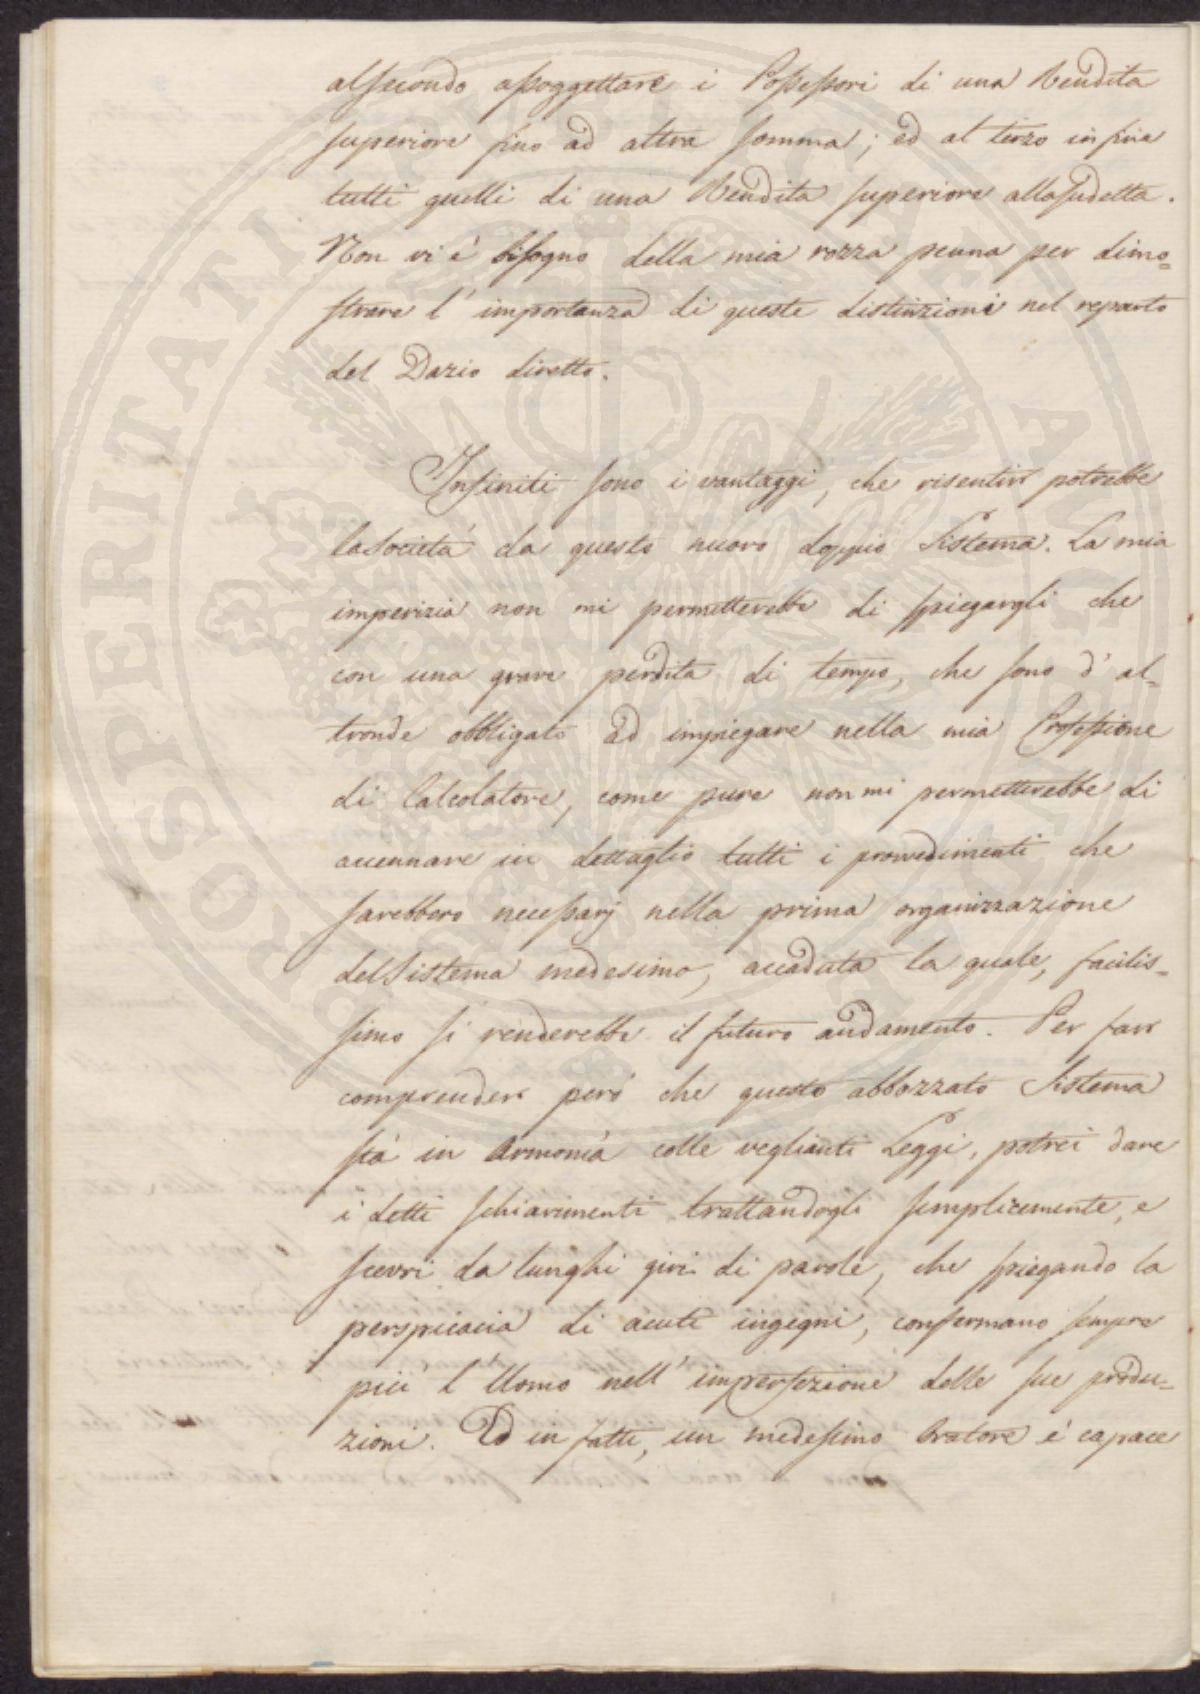 al secondo assoggettare i Possessori di una Rendita
superiore fino ad altra somma; ed al terzo in fine
tutti quelli di una Rendita superiore alla sudetta.
Non vi è bisogno della mia rozza penna per dimo=
strare l' importanza di queste distinzioni nel reparto
del Dazio diretto.
Infiniti sono i vantaggi, che risentir potrebbe
la Società da questo nuovo doppio Sistema. La mia
imperizia non mi permetterebbe di spiegargli che
con una grave perdita di tempo, che sono d' al=
tronde obbligato ad impiegare nella mia Professione
di Calcolatore, come pure non mi permetterebbe di
accennare in dettaglio tutti i provvedimenti che
sarebbero necessarj nella prima organizzazione
del Sistema medesimo, accaduta la quale, facilis=
simo si renderebbe il futuro andamento. Per far
comprender però che questo abbozzato Sistema
stà in armonìa colle veglianti Leggi, potrei dare
i detti schiarimenti trattandogli semplicemente, e
scevri da lunghi giri di parole, che spiegando la
perspicacia di acuti ingegni, confermano sempre
più l' Uomo nell' imperfezione delle sue produ=
zioni. Ed in fatti, un medesimo Oratore è capace
PROSPERITATI PUBLICAE AUGENDAE